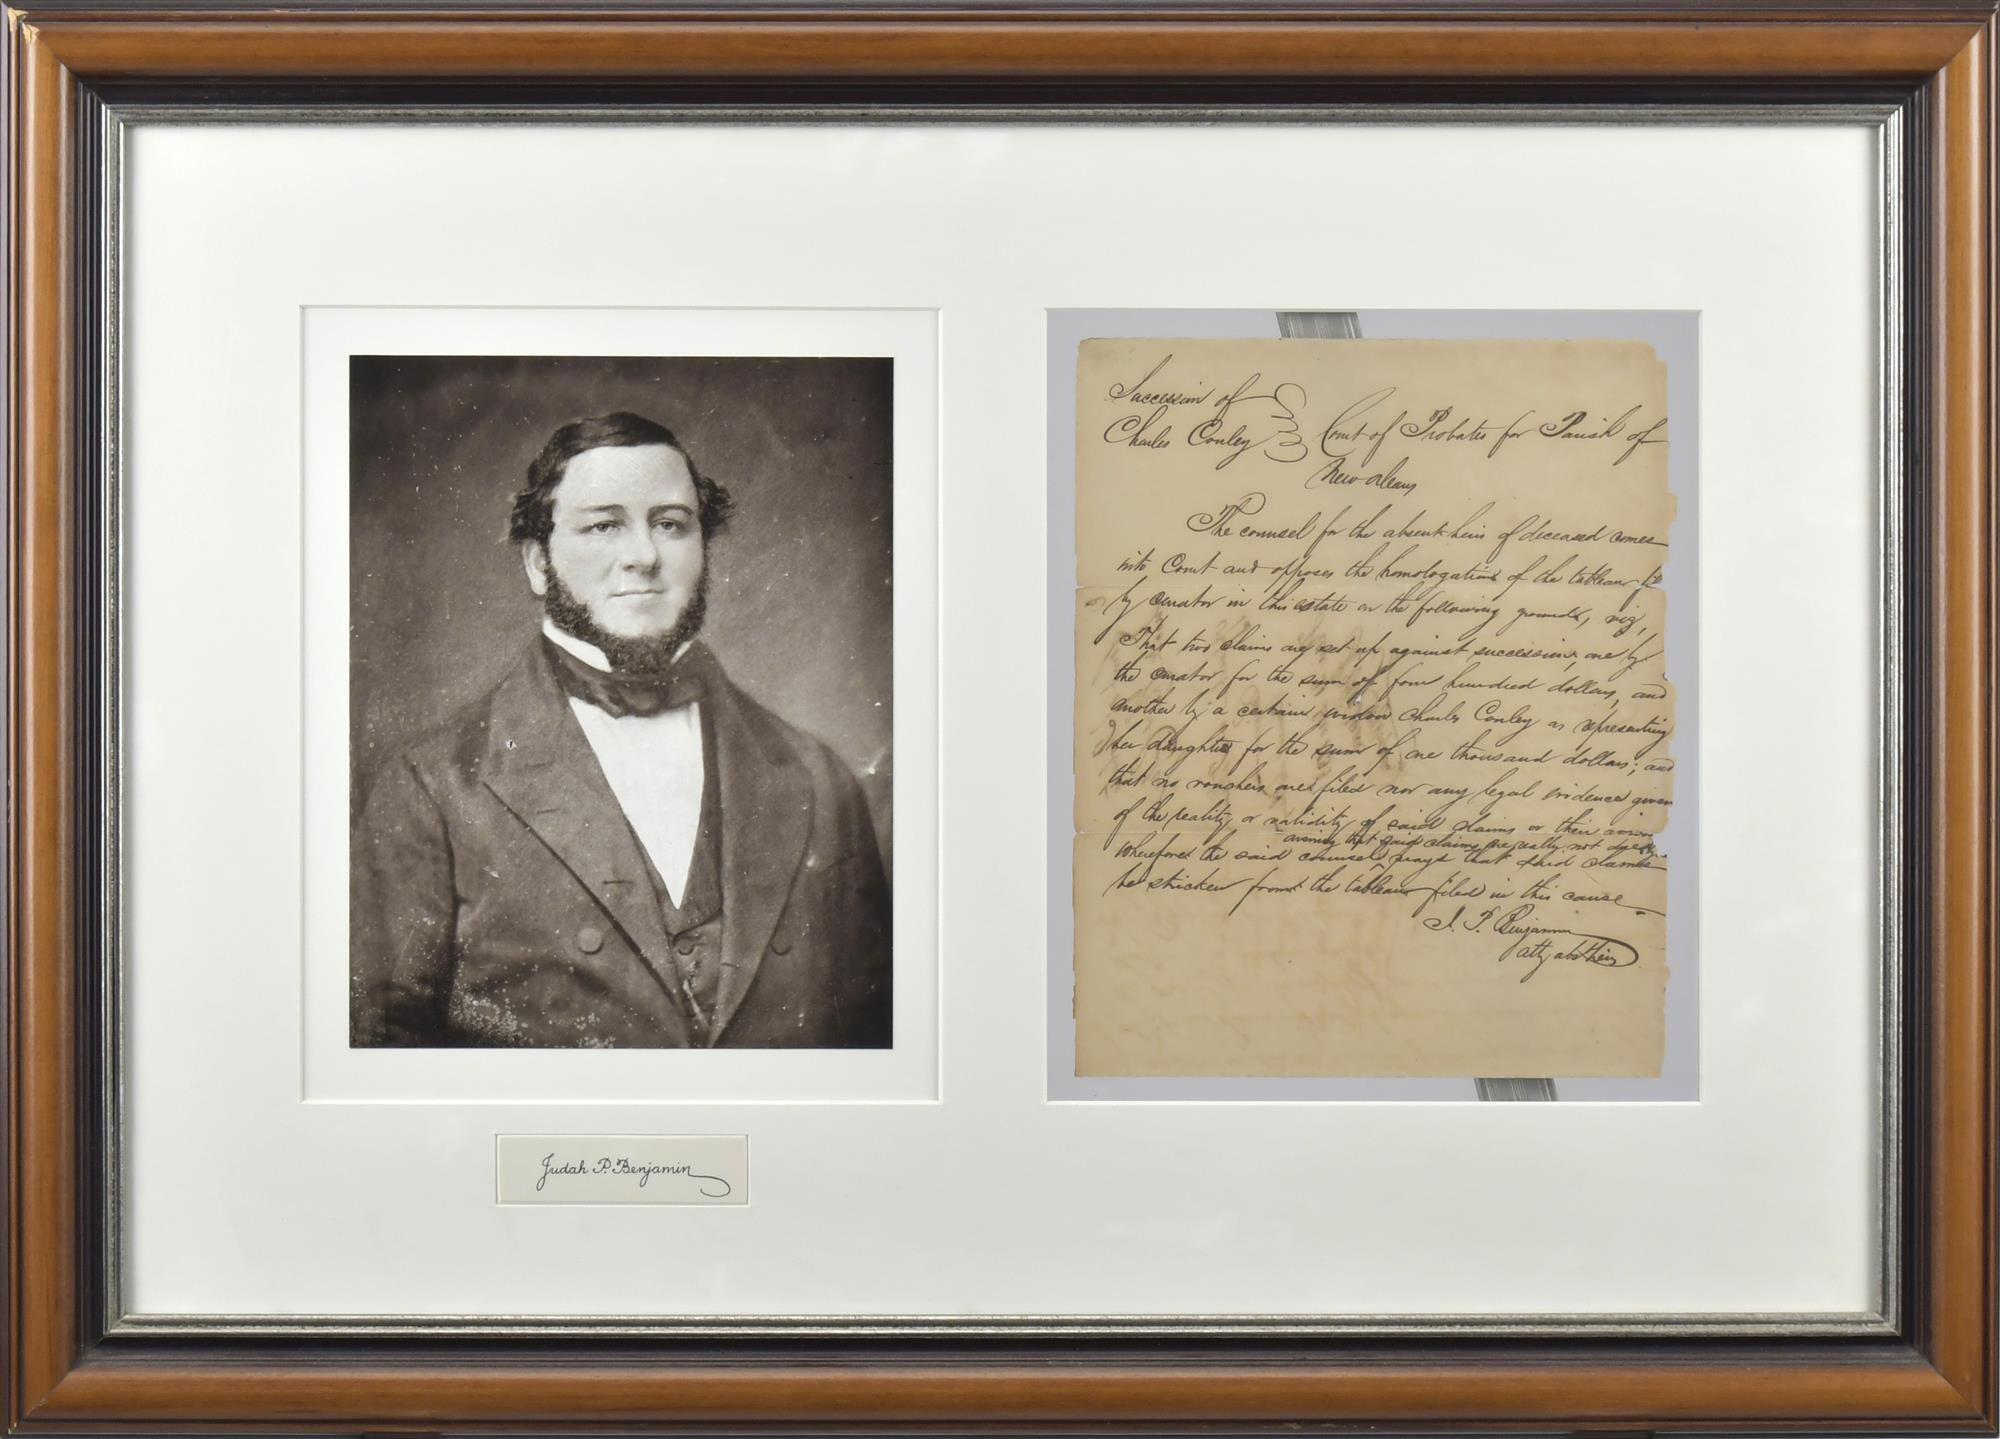 Judah P. Benjamin
Succession of
Charles Conley
Court of Probates for Parish of
New Orleans
The counsel for the absent heirs of deceased comes
into Court and opposes the homologation of the tableau
by curator in this estate on the following grounds, viz,
That two claims are set up against succession, one by
the curator for the sum of four hundred dollars, and
another by a certain widow Charles Conley as representing
her daughter for the sum of one thousand dollars; and
that no vouchers are filed nor any legal evidence given
of the reality or validity of said claims or their
averring that said claims are really not
wherefore the said counsel prays that said claims
be stricken from the tableau filed in this cause
J. P. Benjamin
atty abst heirs